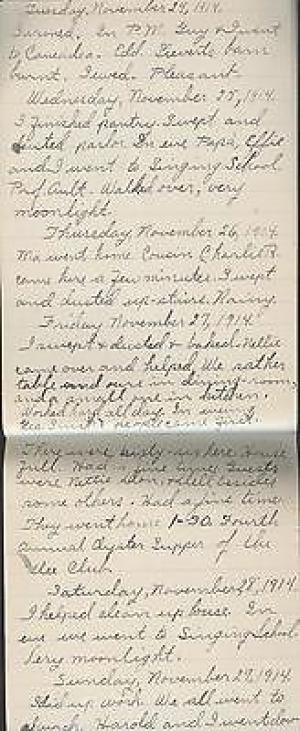 Tuesday, November 24, 1914.
In P.M. Guy & I went
to Caneadea. Edd barn
burnt. Sewed. Pleasant.
Wednesday, November 25, 1914.
I finished pantry. Swept and
dusted parlor. In eve Papa, Effie
and I went to Singing School
Prof. Ault. Walked over, very
moonlight.
Thursday, November 26, 1914.
Ma went home. Cousin Charlie R.
came here a few minutes. I swept
and dusted up-stairs. Rainy.
Friday November 27, 1914.
I swept & dusted & baked. Nellie
came over and helped. We
table and one in dining-room,
and a small one in kitchen.
Worked hard all day. In evening
people came first.
They were sixty-six here House
full. Had a fine time. Guests
were Nettie besides
some others. Had a fine time
They went home 1-30. Fourth
annual Oyster Supper of the
Club.
Saturday, November 28, 1914.
I helped clean up house. In
eve we went to Singing School
Very moonlight.
Sunday, November 29, 1914.
Did up work. We all went to
church. Harold and I went down